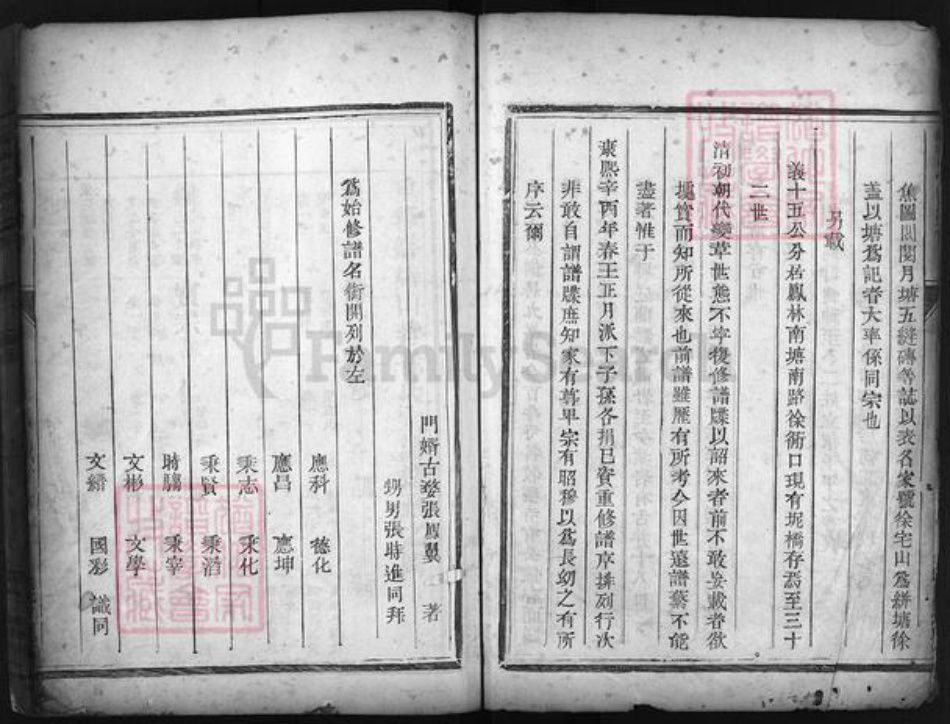 焦圖閣閱月塘五縫磚等誌以表名家號徐宅山爲絣塘徐
蓋以塘爲記者大率係同宗也
另載
義十五公分居鳳林南塘南路徐衕口現有坭橋存焉至三十
二世
清初朝代變革世態不寧復修譜牒以詔來者前不敢妄載者欲
塊實而知所從來也前譜雖歷有所考今因世遠譜繁不能
盡著惟于
康熙辛酉年春王正月派下子孫各捐已資重修譜序排列行次
非敢自謂譜牒庶知家有尊卑宗有昭穆以爲長幼之有所
序云爾
門婿古婺張鳳翼 著
甥男張時進同拜
爲始修譜名銜開列於左
應科 德化
應昌 應坤
秉志 秉化
秉賢 秉滔
時賜 秉宰
文彬 文學
文繡 國彩 識同
FamilySearch